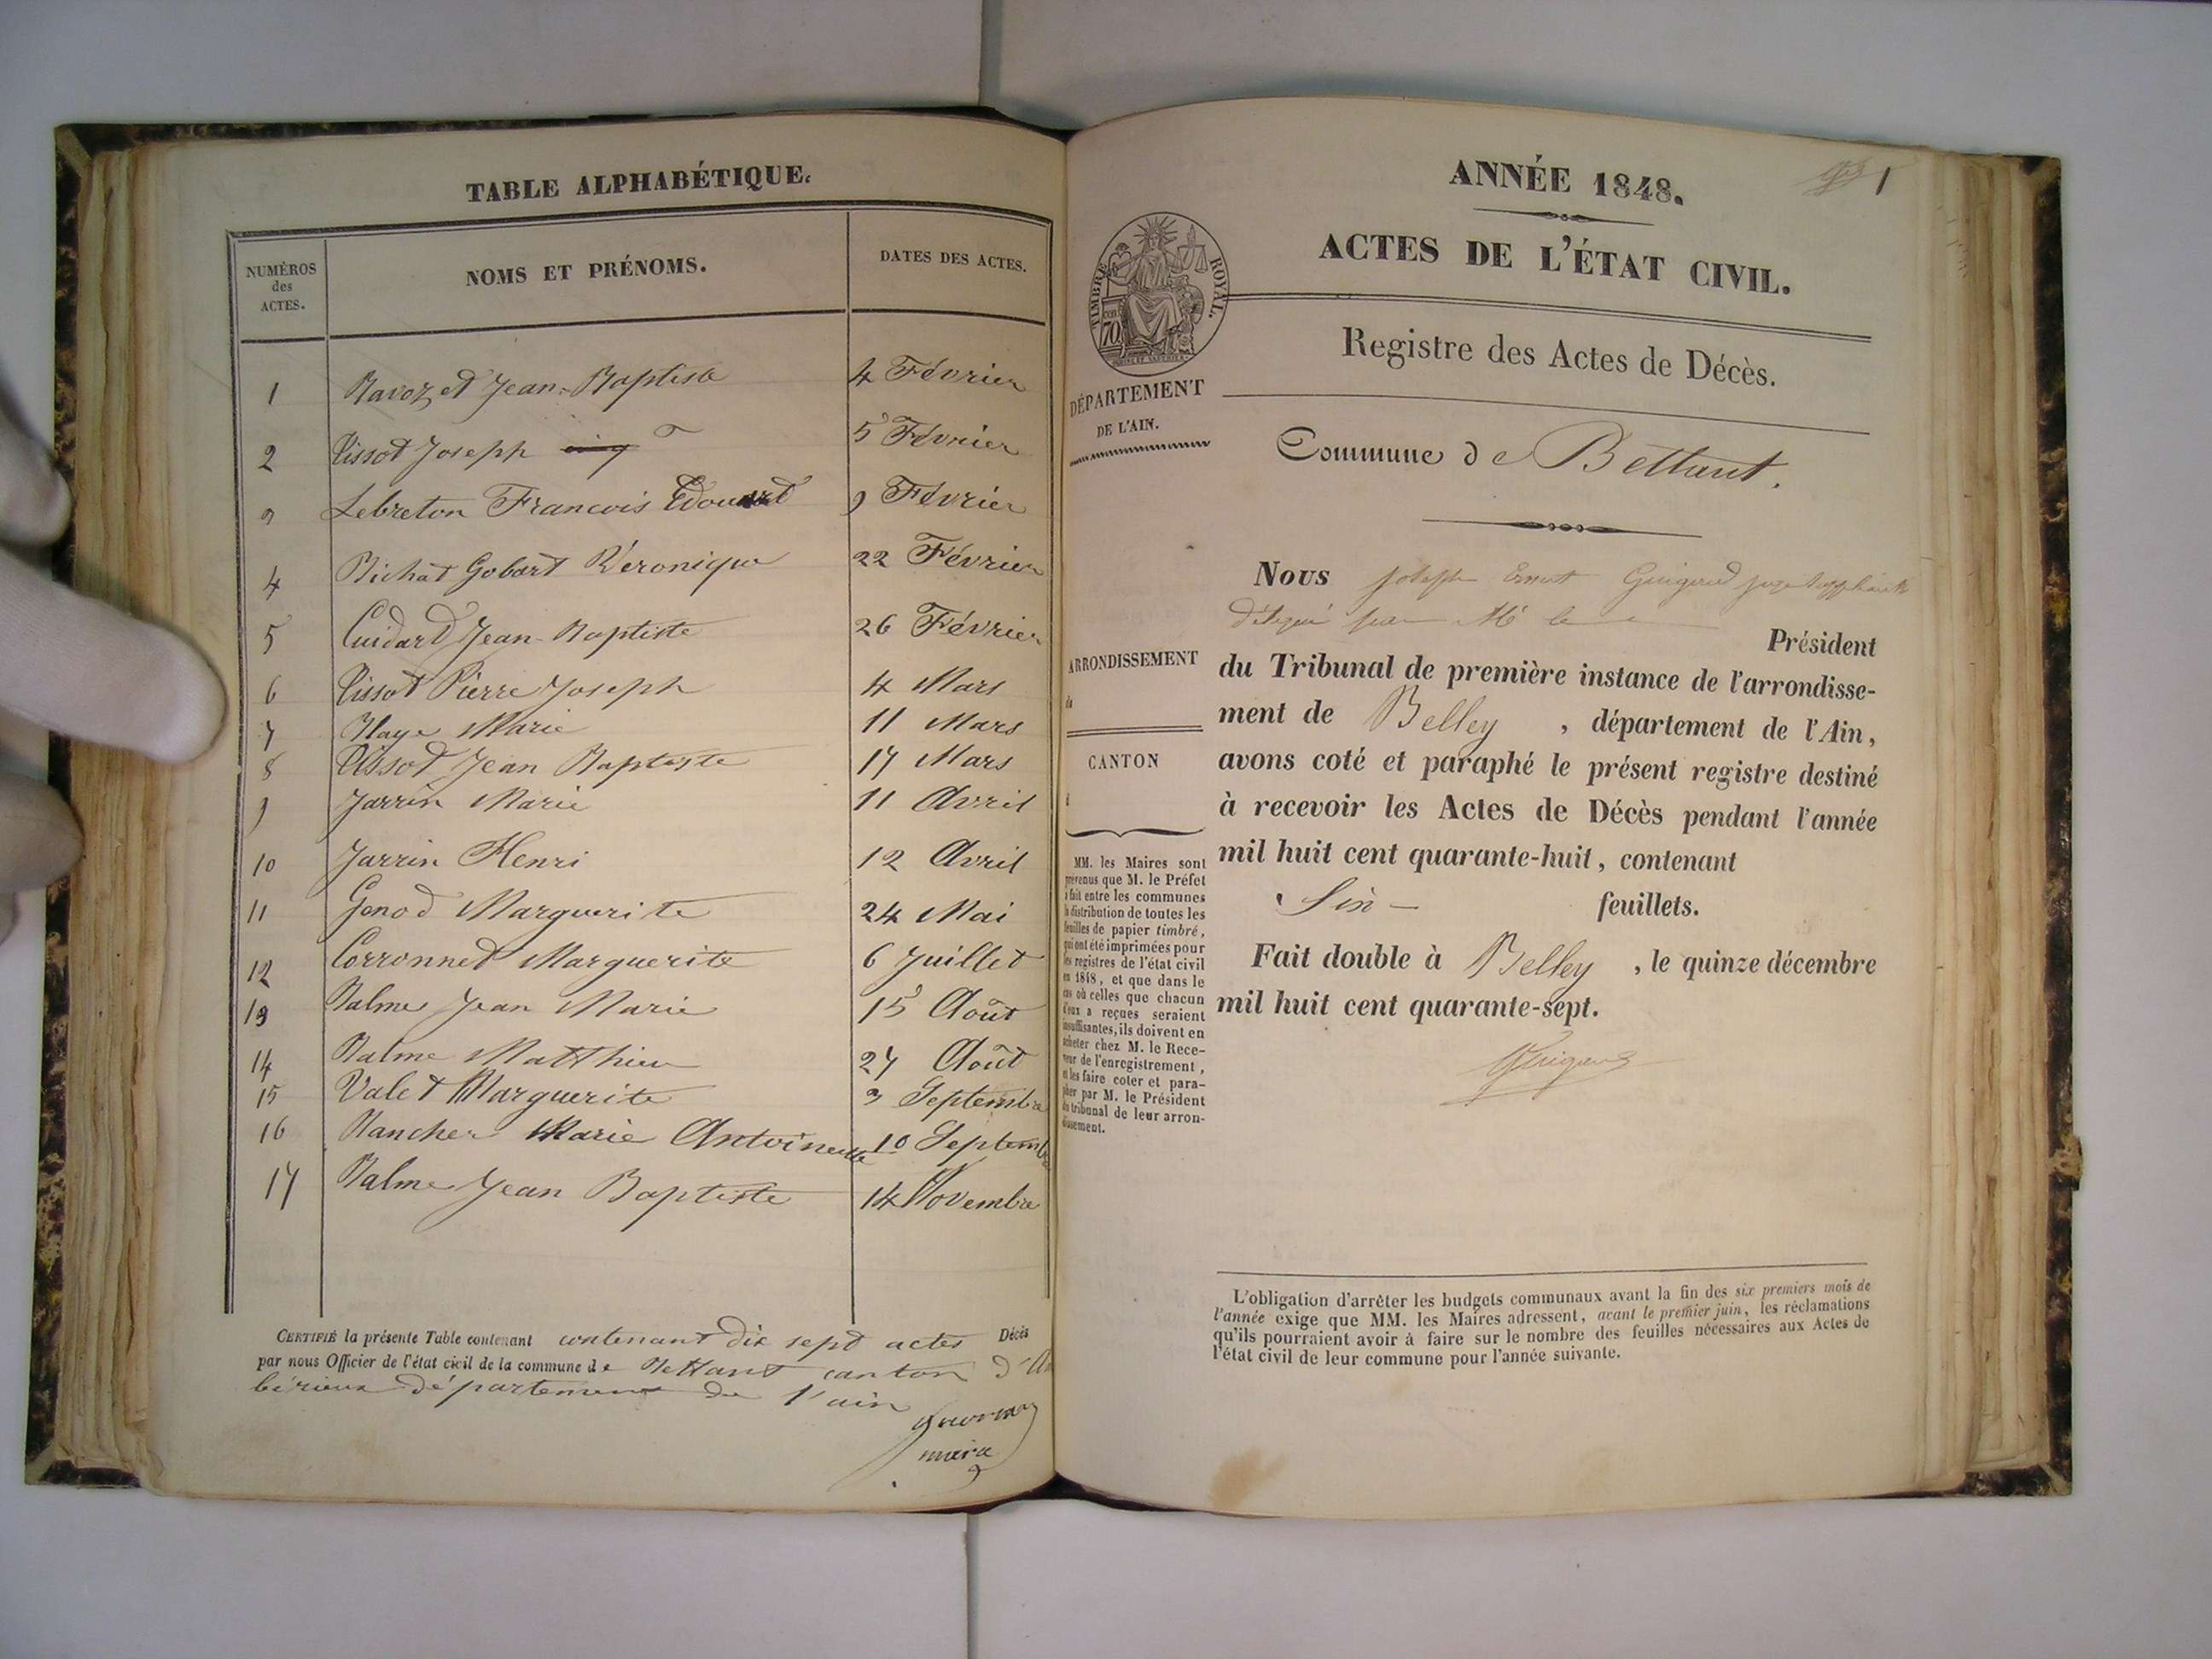 TABLE ALPHABÉTIQUE.
NUMÉROS des ACTES. NOMS ET PRÉNOMS. DATES DES ACTES.
1 Ravoz et Jean-Baptiste 4 Février
2 Tissot Joseph 5 Février
3 Lebreton Francois Edouard 9 Février
4 Bichat Gobart Véronique 22 Février
5 Cuidard Jean-Baptiste 26 Février
6 Tissot Pierre Joseph 4 Mars
7 Marie 11 Mars
8 Tissot Jean Baptiste 17 Mars
9 Jarrin Marie 11 Avril
10 Jarrin Henri 12 Avril
11 Genod Marguerite 24 Mai
12 Corronnet Marguerite 6 Juillet
13 Balme Jean Marie 15 Août
14 Balme Matthieu 27 Août
15 Valet Marguerite 3 Septembre
16 Marie Antoinette 10 Septemb
17 Balme Jean Baptiste 14 Novembre
CERTIFIÉ la présente Table contenant contenant dix sept actes Décès
par nous Officier de l'état civil de la commune de Bettant canton d'Am
bérieux département de l'ain
maire
1
ANNÉE 1848.
ACTES DE L'ÉTAT CIVIL.
TIMBRE ROYAL.
70
Registre des Actes de Décès.
DÉPARTEMENT
DE L'AIN.
Commune de Bettant.
ARRONDISSEMENT
de
CANTON
MM. les Maires sont
prévenus que M. le Préfet
a fait entre les communes
la distribution de toutes les
feuilles de papier timbré,
qui ont été imprimées pour
les registres de l'état civil
en 1848, et que dans le
cas où celles que chacun
d'eux a reçues seraient
insuffisantes, ils doivent en
acheter chez M. le Rece-
veur de l'enregistrement,
et les faire coter et para-
pher par M. le Président
du tribunal de leur arron-
dissement.
Nous Joseph Ernest Guigard juge suppléant
délégué par Mr le Président
du Tribunal de première instance de l'arrondisse-
ment de Belley, département de l'Ain,
avons coté et paraphé le présent registre destiné
à recevoir les Actes de Décès pendant l'année
mil huit cent quarante-huit, contenant
Six feuillets.
Fait double à Belley, le quinze décembre
mil huit cent quarante-sept.
L'obligation d'arrêter les budgets communaux avant la fin des six premiers mois de
l'année exige que MM. les Maires adressent, avant le premier juin, les réclamations
qu'ils pourraient avoir à faire sur le nombre des feuilles nécessaires aux Actes de
l'état civil de leur commune pour l'année suivante.